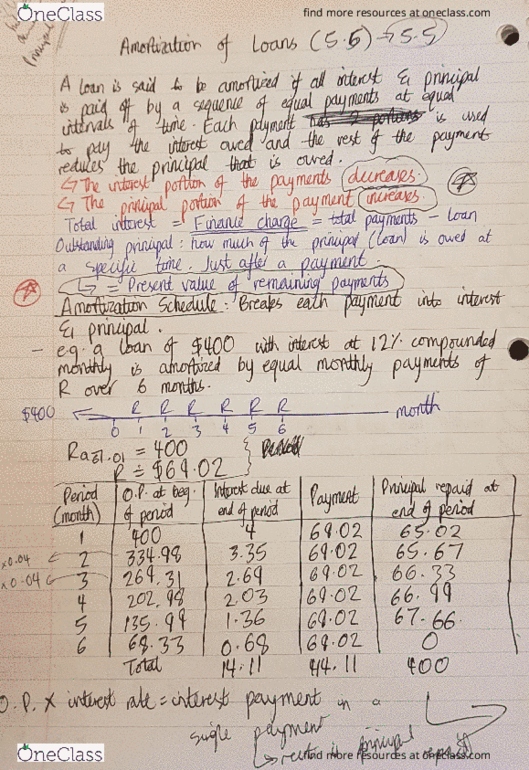 OneClass
find more resources at oneclass.com
Amortization of Loans (5.6) → 5.5
A loan is said to be amortized if all interest & principal
is paid off by a sequence of equal payments at equal
intervals of time. Each payment is used
to pay the interest owed and the rest of the payment
reduces the principal that is owed.
↳ The interest portion of the payments decreases.
↳ The principal portion of the payment increases.
Total interest = Finance charge = total payments - loan
Outstanding principal: how much of the principal (loan) is owed at
a specific time. Just after a payment.
↳ = Present value of remaining payments
Amortization Schedule: Breaks each payment into interest
& principal.
- eg. a loan of $400 with interest at 12% compounded
monthly is amortized by equal monthly payments of
R over 6 months.
R R R R R R
$400 month
0 1 2 3 4 5 6
Ra6̅|.01 = 400
R ≐ $69.02
Period (month) O.P. at beg. of period Interest due at end of period Payment Principal repaid at end of period
1 400 4 69.02 65.02
x0.04 2 334.98 3.35 69.02 65.67
x0.04 3 269.31 2.69 69.02 66.33
4 202.98 2.03 69.02 66.99
5 135.99 1.36 69.02 67.66
6 68.33 0.68 69.02 0
Total 14.11 414.11 400
O.P. x interest rate = interest payment in a
single payment
↳ rest is principal
OneClass
find more resources at oneclass.com